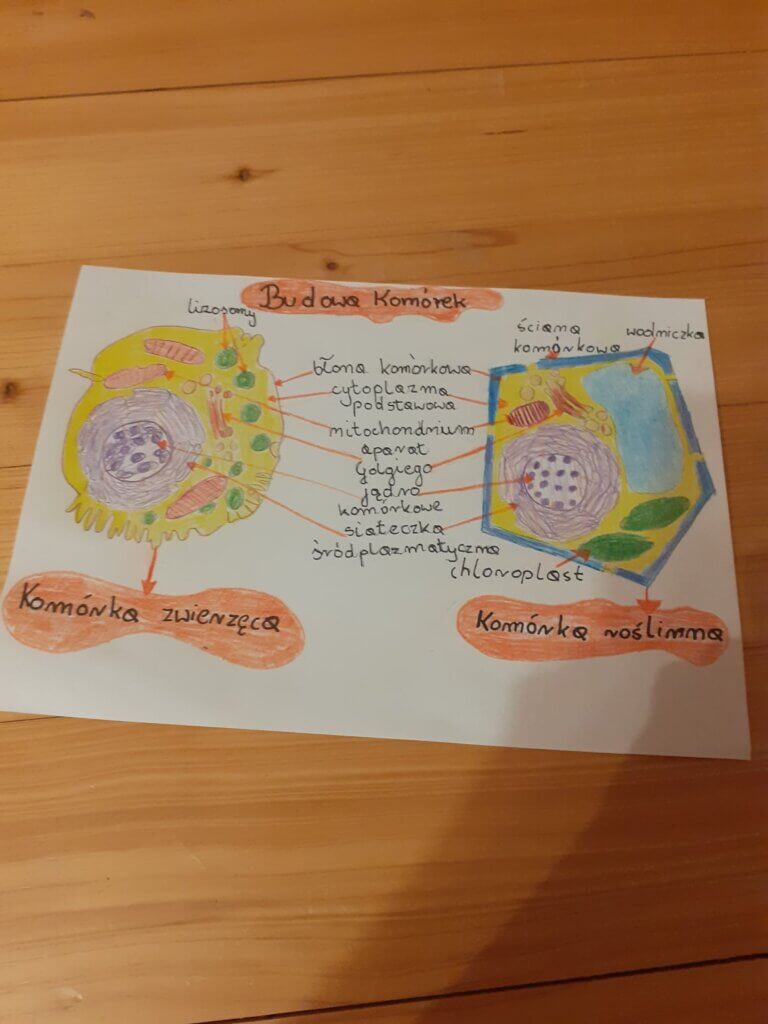 Budowa Komórek
lizosomy
ściana
komórkowa
wodniczka
błona komórkowa
cytoplazma
podstawowa
mitochondrium
aparat
Golgiego
jądro
komórkowe
siateczka
śródplazmatyczna
chloroplast
Komórka zwierzęca
Komórka roślinna